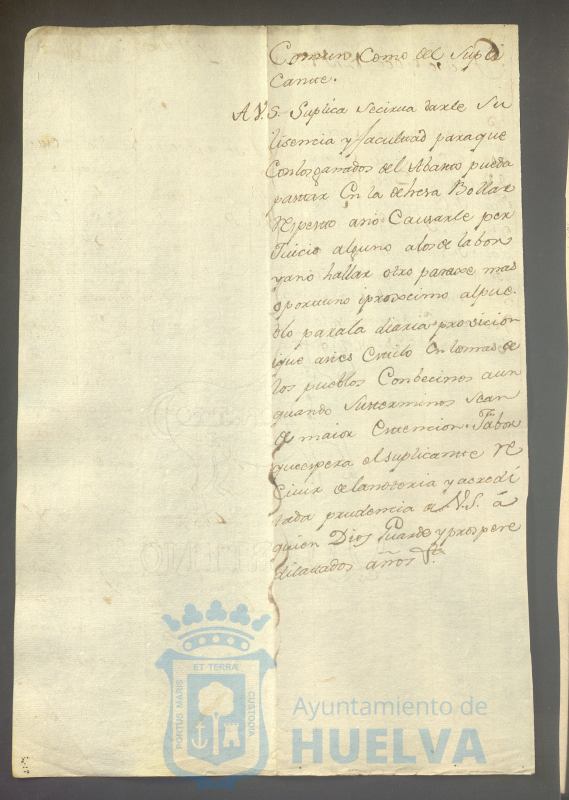 Comun, Como del Supli
cante.
A V.S. Suplica Secirva darle Su
lisencia y facultad paraque
Conlosganados del Abasto pueda
pastar En la dehesa Bollar
Respecto ano Causarle per
Juicio alguno alosde labor
yano hallar otro paraxe mas
oportuno iprossimo alpue
blo parala diaria provicion
ique anes Cruilo Enlomas de
los pueblos Conbecinos aun
quando Sustterminos Sean
de maior Estencion. Fabor
queespera el suplicante Re
civir delanotoria yacredi
tada prudencia de V.S. á
quien Dios Guarde yprospere
dilatados años
PORTUS MARIS
ET TERRÆ
CUSTODIA
Ayuntamiento de
HUELVA